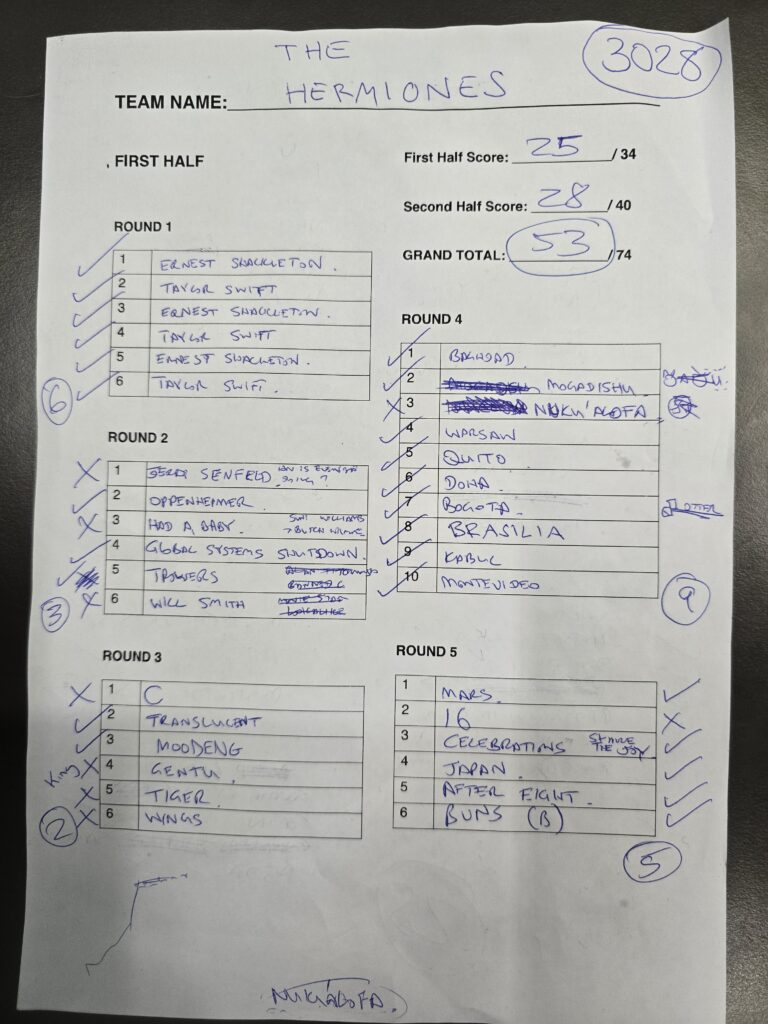 THE
HERMIONES
3028
TEAM NAME:
FIRST HALF
First Half Score: 25 / 34
Second Half Score: 28 / 40
GRAND TOTAL: 53 / 74
ROUND 1
1 ERNEST SHACKLETON.
2 TAYLOR SWIFT
3 ERNEST SHACKLETON.
4 TAYLOR SWIFT
5 ERNEST SHACKLETON.
6 TAYLOR SWIFT.
6
ROUND 2
1 SENFELD
2 OPPENHEIMER.
3 HAD A BABY. SUNI WILLIAMS
4 GLOBAL SYSTEMS SHUTDOWN.
5 TROWERS
6 WILL SMITH
3
ROUND 3
1 C
2 TRANSLUCENT
3 MOODENG
King 4 GENTU.
5 TIGER.
6 WINGS
2
ROUND 4
1 BAGHDAD.
2 MOGADISHU.
3 NUKU'ALOFA
4 WARSAW
5 QUITO
6 DOHA.
7 BOGOTA.
8 BRASILIA
9 KABUL
10 MONTEVIDEO
9
ROUND 5
1 MARS.
2 16
3 CELEBRATIONS SHARE THE JOY
4 JAPAN.
5 AFTER EIGHT.
6 BUNS (B)
5
NUKU'ALOFA.